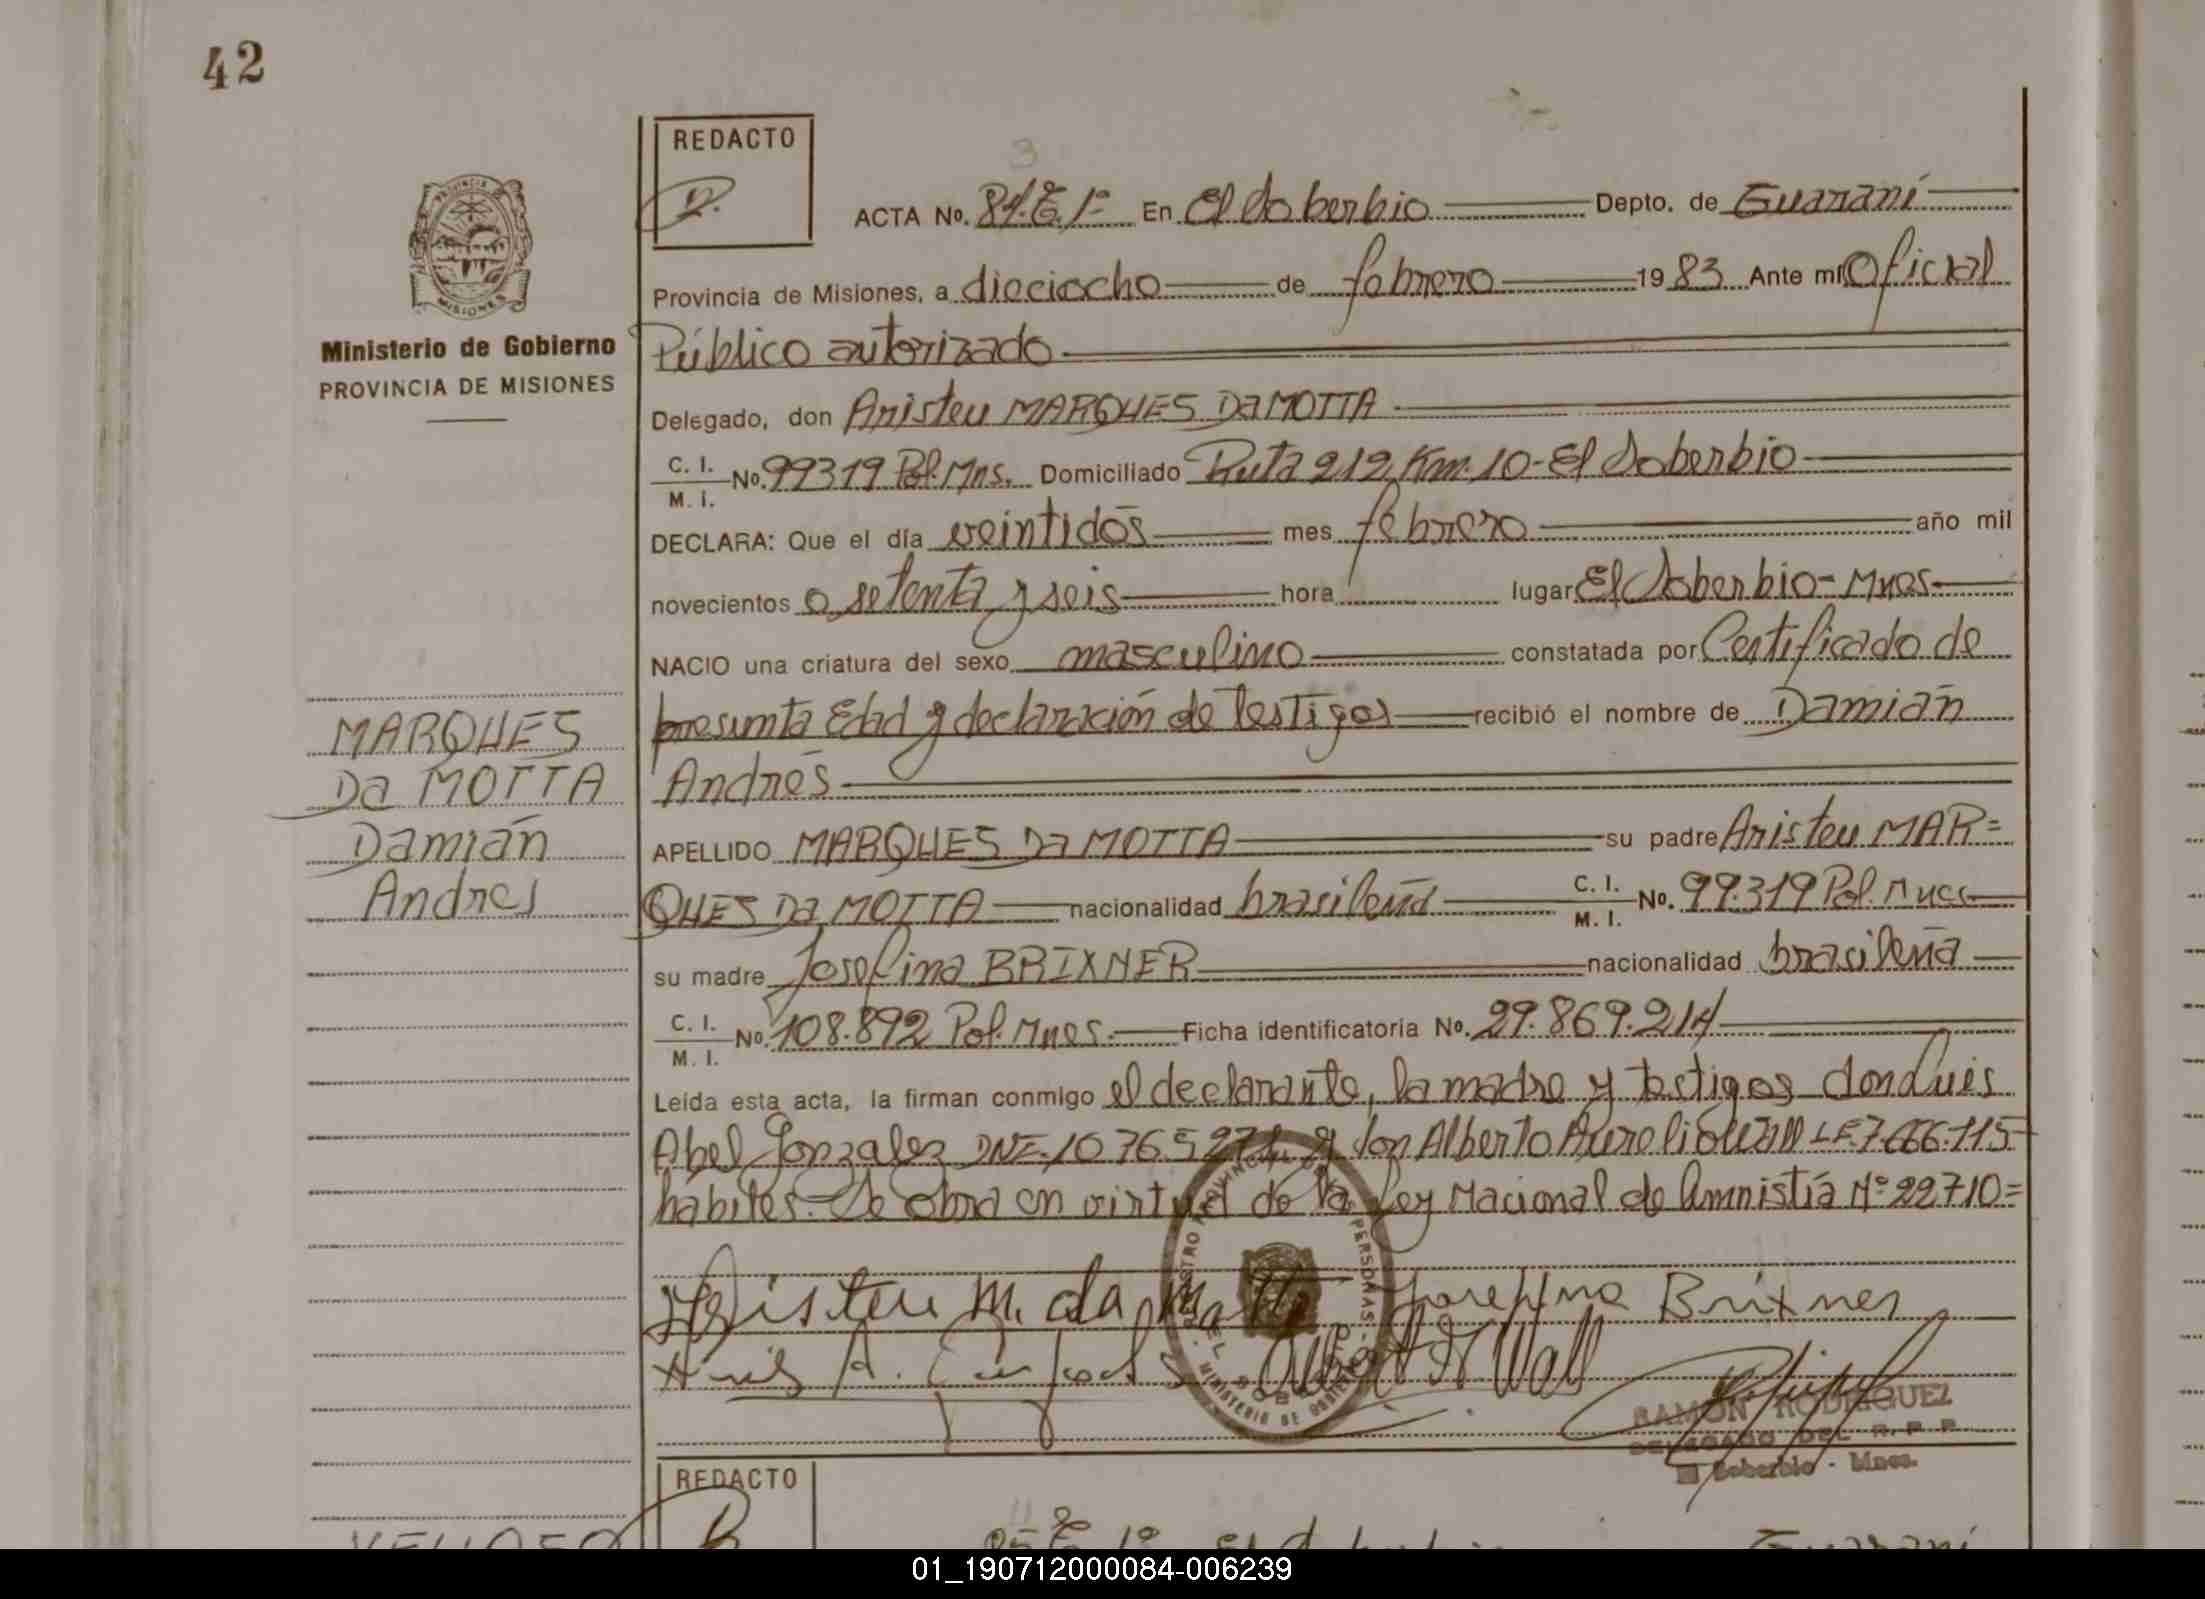 42
REDACTO
ACTA No. 84.T.1º En El Soberbio Depto. de Guaraní
Provincia de Misiones, a dieciocho de febrero 1983 Ante mí Oficial
Público autorizado
Delegado, don Aristeu MARQUES Da MOTTA
C. I.
M. I. No. 99319 Pol. Mns. Domiciliado Ruta 212 Km. 10 - El Soberbio
DECLARA: Que el día veintidós mes febrero año mil
novecientos o setenta y seis hora lugar El Soberbio - Mnes
NACIO una criatura del sexo masculino constatada por Certificado de
presunta Edad y declaración de Testigos recibió el nombre de Damián
Andrés
APELLIDO MARQUES Da MOTTA su padre Aristeu MAR=
QUES Da MOTTA nacionalidad brasileña C. I.
M. I. No. 99.319 Pol. Mnes
su madre Josefina BRIXNER nacionalidad brasileña
C. I.
M. I. No. 108.892 Pol. Mnes. Ficha identificatoria No. 29.869.214
Leída esta acta, la firman conmigo el declarante, la madre y testigos don Luis
Abel Gonzalez DNI. 10 765 271 y don Alberto Aurelio WALL LE.7.666.115
habiles. Se obra en virtud de la Ley Nacional de Amnistía Nº 22710=
Aristeu M. da Motta Josefina Brixner
Luis A. Alberto A Wall
REGISTRO PROVINCIAL DE LAS PERSONAS
MINISTERIO DE GOBIERNO
RAMON RODRIGUEZ
DELEGADO DEL R. P. P.
El Soberbio - Mnes.
PROVINCIA
MISIONES
Ministerio de Gobierno
PROVINCIA DE MISIONES
MARQUES
Da MOTTA
Damián
Andres
REDACTO
01_190712000084-006239